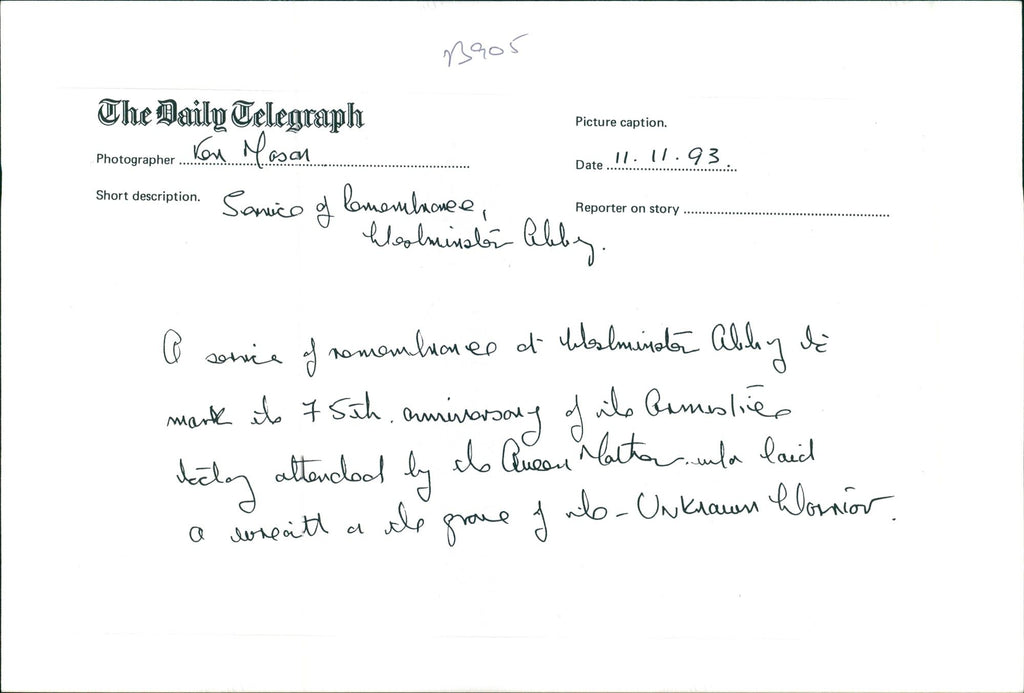 B905
The Daily Telegraph
Picture caption.
Photographer Ken Mason
Date 11.11.93.
Short description. Service of Remembrance,
Reporter on story
Westminster Abbey.
A service of remembrance at Westminster Abbey to
mark the 75th. anniversary of the Armistice
today attended by the Queen Mother who laid
a wreath at the grave of the - Unknown Warrior.